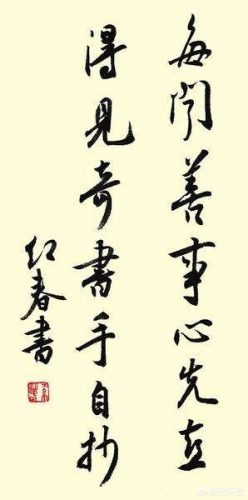 每闻善事心先喜
得見奇書手自抄
红春書